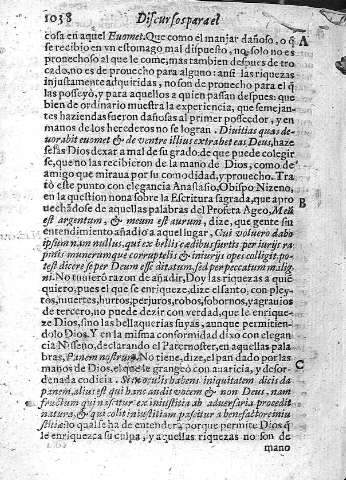 1038 Discursos para el
cosa en aquel Euomet. Que como el manjar dañoso, o q̃
se recibio en vn estomago mal dispuesto, no solo no es
prouechoso al que le come, mas tambien despues de tro
cado, no es de prouecho para alguno: ansi las riquezas
injustamente adquiridas, no son de prouecho para el q̃
las posseyò, y para aquellos a quien passan despues: que
bien de ordinario muestra la experiencia, que semejan-
tes haziendas fueron dañosas al primer posseedor, y en
manos de los herederos no se logran. Diuitias quas de-
uorabit euomet & de ventre illius extrahet eas Deus, haze
selas Dios dexar a mal de su grado: de que puede colegir
se, que no las recibieron de la mano de Dios, como de
amigo que miraua por su comodidad, y prouecho. Tra
tò este punto con elegancia Anastasio, Obispo Nizeno,
en la question nona sobre la Escritura sagrada, que apro
uechãdose de aquellas palabras del Profeta Ageo, Meũ
est argentum, & meum est aurum, dize, que gente sin
entendimiento añadio a aquel lugar, Cui voluero dabo
ipsum nam nullus, qui ex bellis cædibus furtis per iurijs ra
pinis munerumque corruptelis & iniurijs opes colligit, po-
test dicere se per Deum esse ditatum, sed per peccatum malig-
ni. No tuuierõ razon de añadir, Doy las riquezas a quiẽ
quiero; pues el que se enriqueze, dize el santo, con pley-
tos, muertes, hurtos, perjuros, robos, sobornos, y agrauios
de tercero, no puede dezir con verdad, que le enrique-
ze Dios, sino las bellaquerias suyas, aunque permitien-
dolo Dios. Y en la misma conformidad dixo con elegan
cia Nisseno, declarando el Paternoster, en aquellas pala
bras, Panem nostrum. No tiene, dize, el pan dado por las
manos de Dios, el que le grangeò con auaricia, y desor-
denada codicia. Si in oculis habens iniquitatem dicis da
panem, alius est qui hanc audit vocem & non Deus, nam
fructum qui nascitur ex iniustitia ab aduersaria procedit
natura, & qui colit iniustitiam pascitur a benefactore iniu
stitiæ: lo qual se ha de entender a porque permite Dios q̃
le enriquezca su culpa, y aquellas riquezas no son de
mano
A
B
C